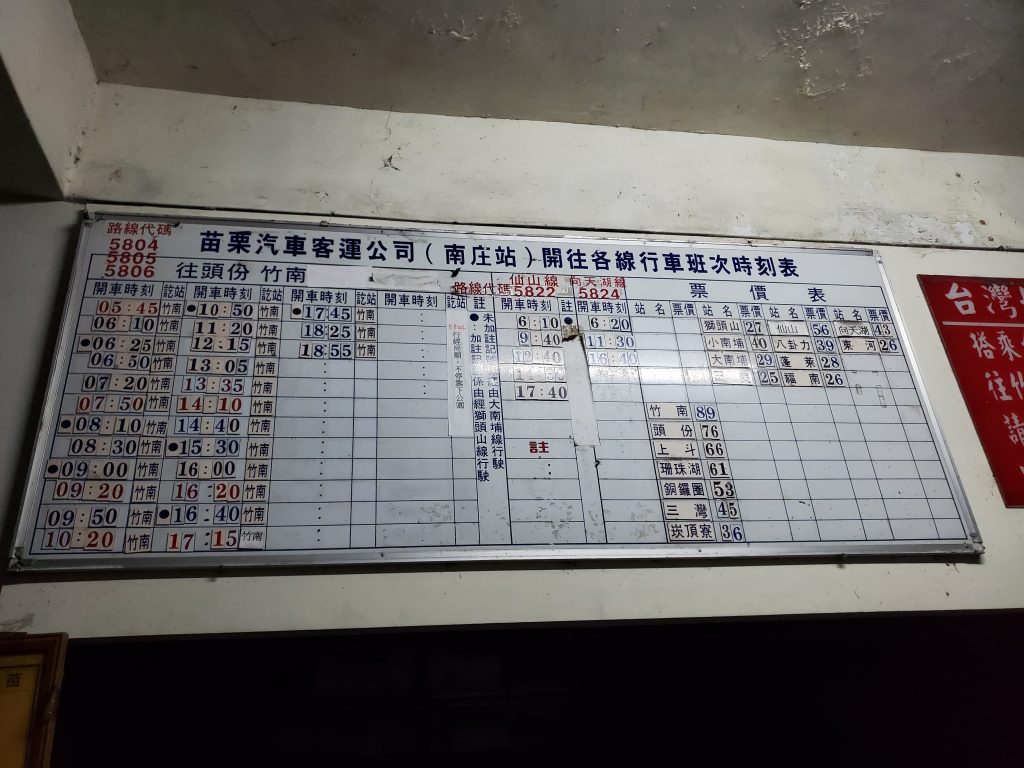 路線代碼
5804
5805
5806
苗栗汽車客運公司(南庄站)開往各線行車班次時刻表
往頭份 竹南
仙山線 向天湖線
路線代碼5822 5824
票價表
開車時刻 訖站 開車時刻 訖站 開車時刻 訖站 開車時刻 訖站 註 開車時刻 註 開車時刻 站名 票價 站名 票價 站名 票價 站名 票價
05:45 竹南 ●10:50 竹南 ●17:45 竹南
06:10 竹南 11:20 竹南 18:25 竹南
●06:25 竹南 12:15 竹南 18:55 竹南
06:50 竹南 13:05 竹南
07:20 竹南 13:35 竹南
07:50 竹南 14:10 竹南
●08:10 竹南 14:40 竹南
08:30 竹南 ●15:30 竹南
●09:00 竹南 16:00 竹南
09:20 竹南 16:20 竹南
09:50 竹南 ●16:40 竹南
10:20 竹南 17:15 竹南
●加註記 係由經獅頭山線行駛
未加註記 由大南埔線行駛
6:10 ● 6:20
9:40 11:30
12:40 16:40
17:40
註
獅頭山 27 仙山 56 向天湖 43
小南埔 40 八卦力 39 東河 26
大南埔 29 蓬萊 28
25 福南 26
竹南 89
頭份 76
上斗 66
珊珠湖 61
銅鑼圈 53
三灣 45
崁頂寮 36
台灣
搭乘
往
請
苗